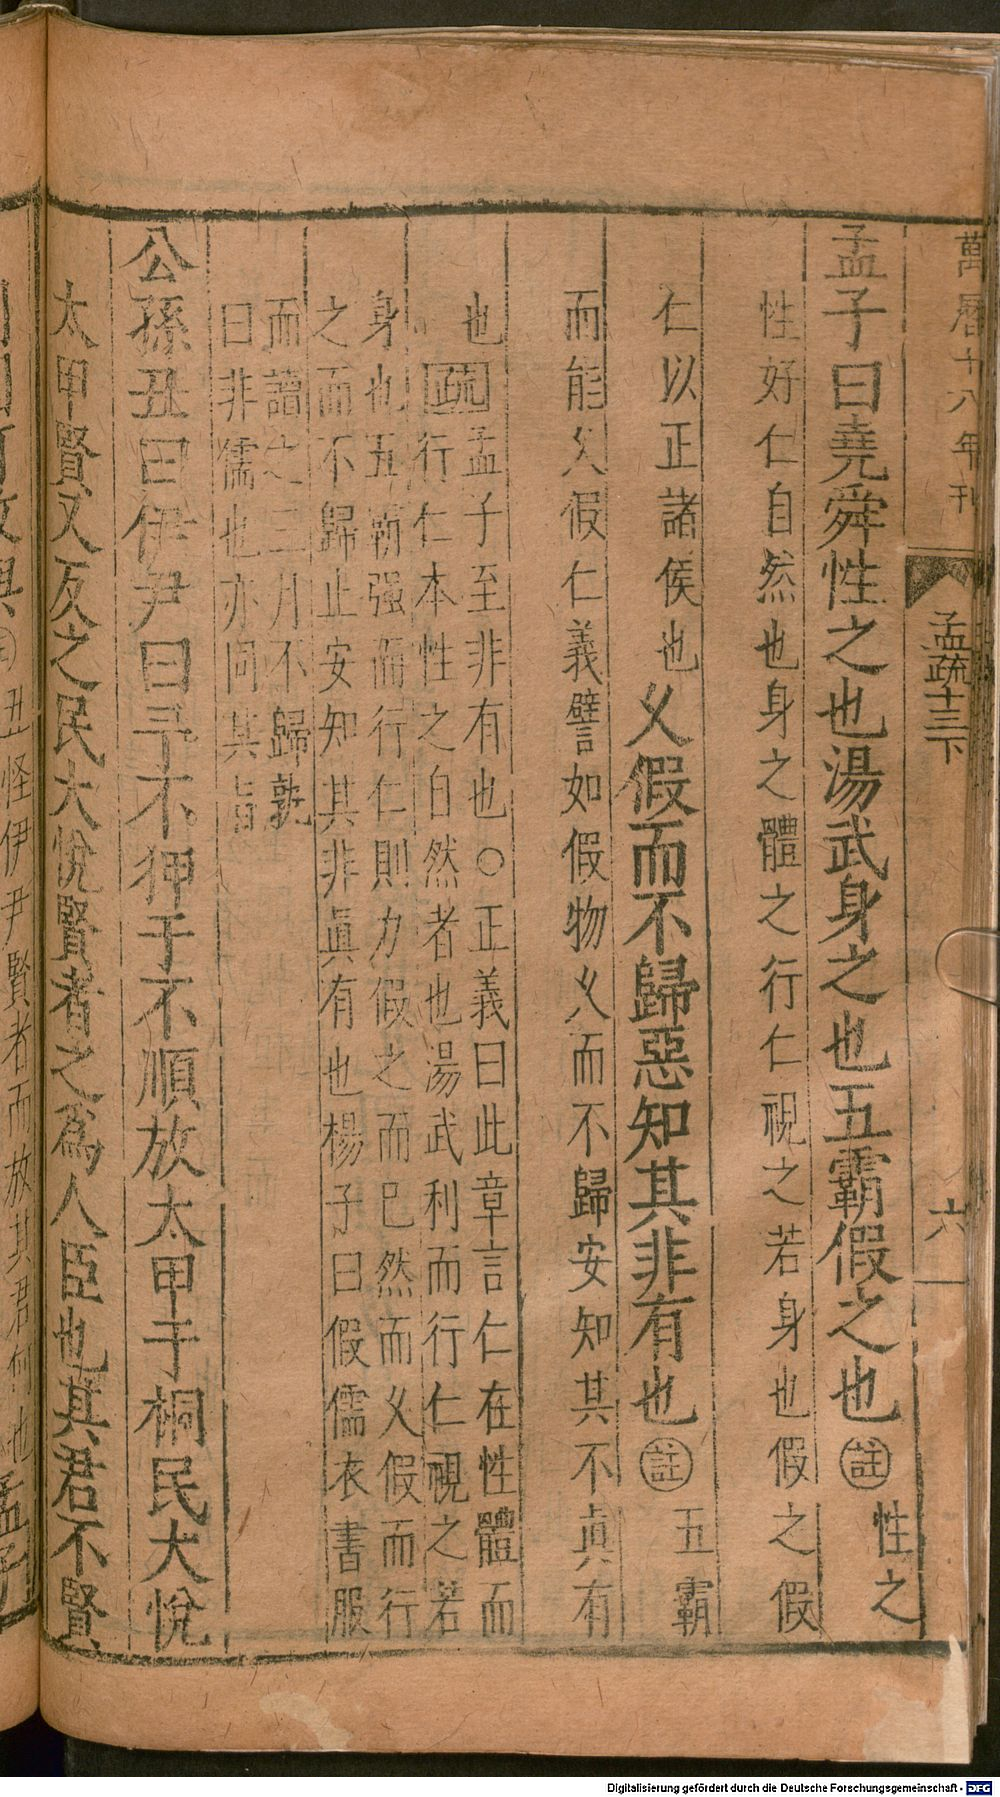 萬曆十八年刊
孟疏十三下
六
孟子曰堯舜性之也湯武身之也五霸假之也㊟性之
性好仁自然也身之體之行仁視之若身也假之假
仁以正諸侯也乆假而不歸惡知其非有也㊟五霸
而能乆假仁義譬如假物乆而不歸安知其不眞有
也疏孟子至非有也○正義曰此章言仁在性體而
行仁本性之自然者也湯武利而行仁視之若
身也五霸强而行仁則力假之而已然而乆假而行
之而不歸止安知其非眞有也楊子曰假儒衣書服
而讀之三月不歸孰
曰非儒也亦同其旨
公孫丑曰伊尹曰予不狎于不順放太甲于桐民大悅
太甲賢又反之民大悅賢者之爲人臣也其君不賢
丑怪伊尹賢者而放其君何也孟子
Digitalisierung gefördert durch die Deutsche Forschungsgemeinschaft - DFG